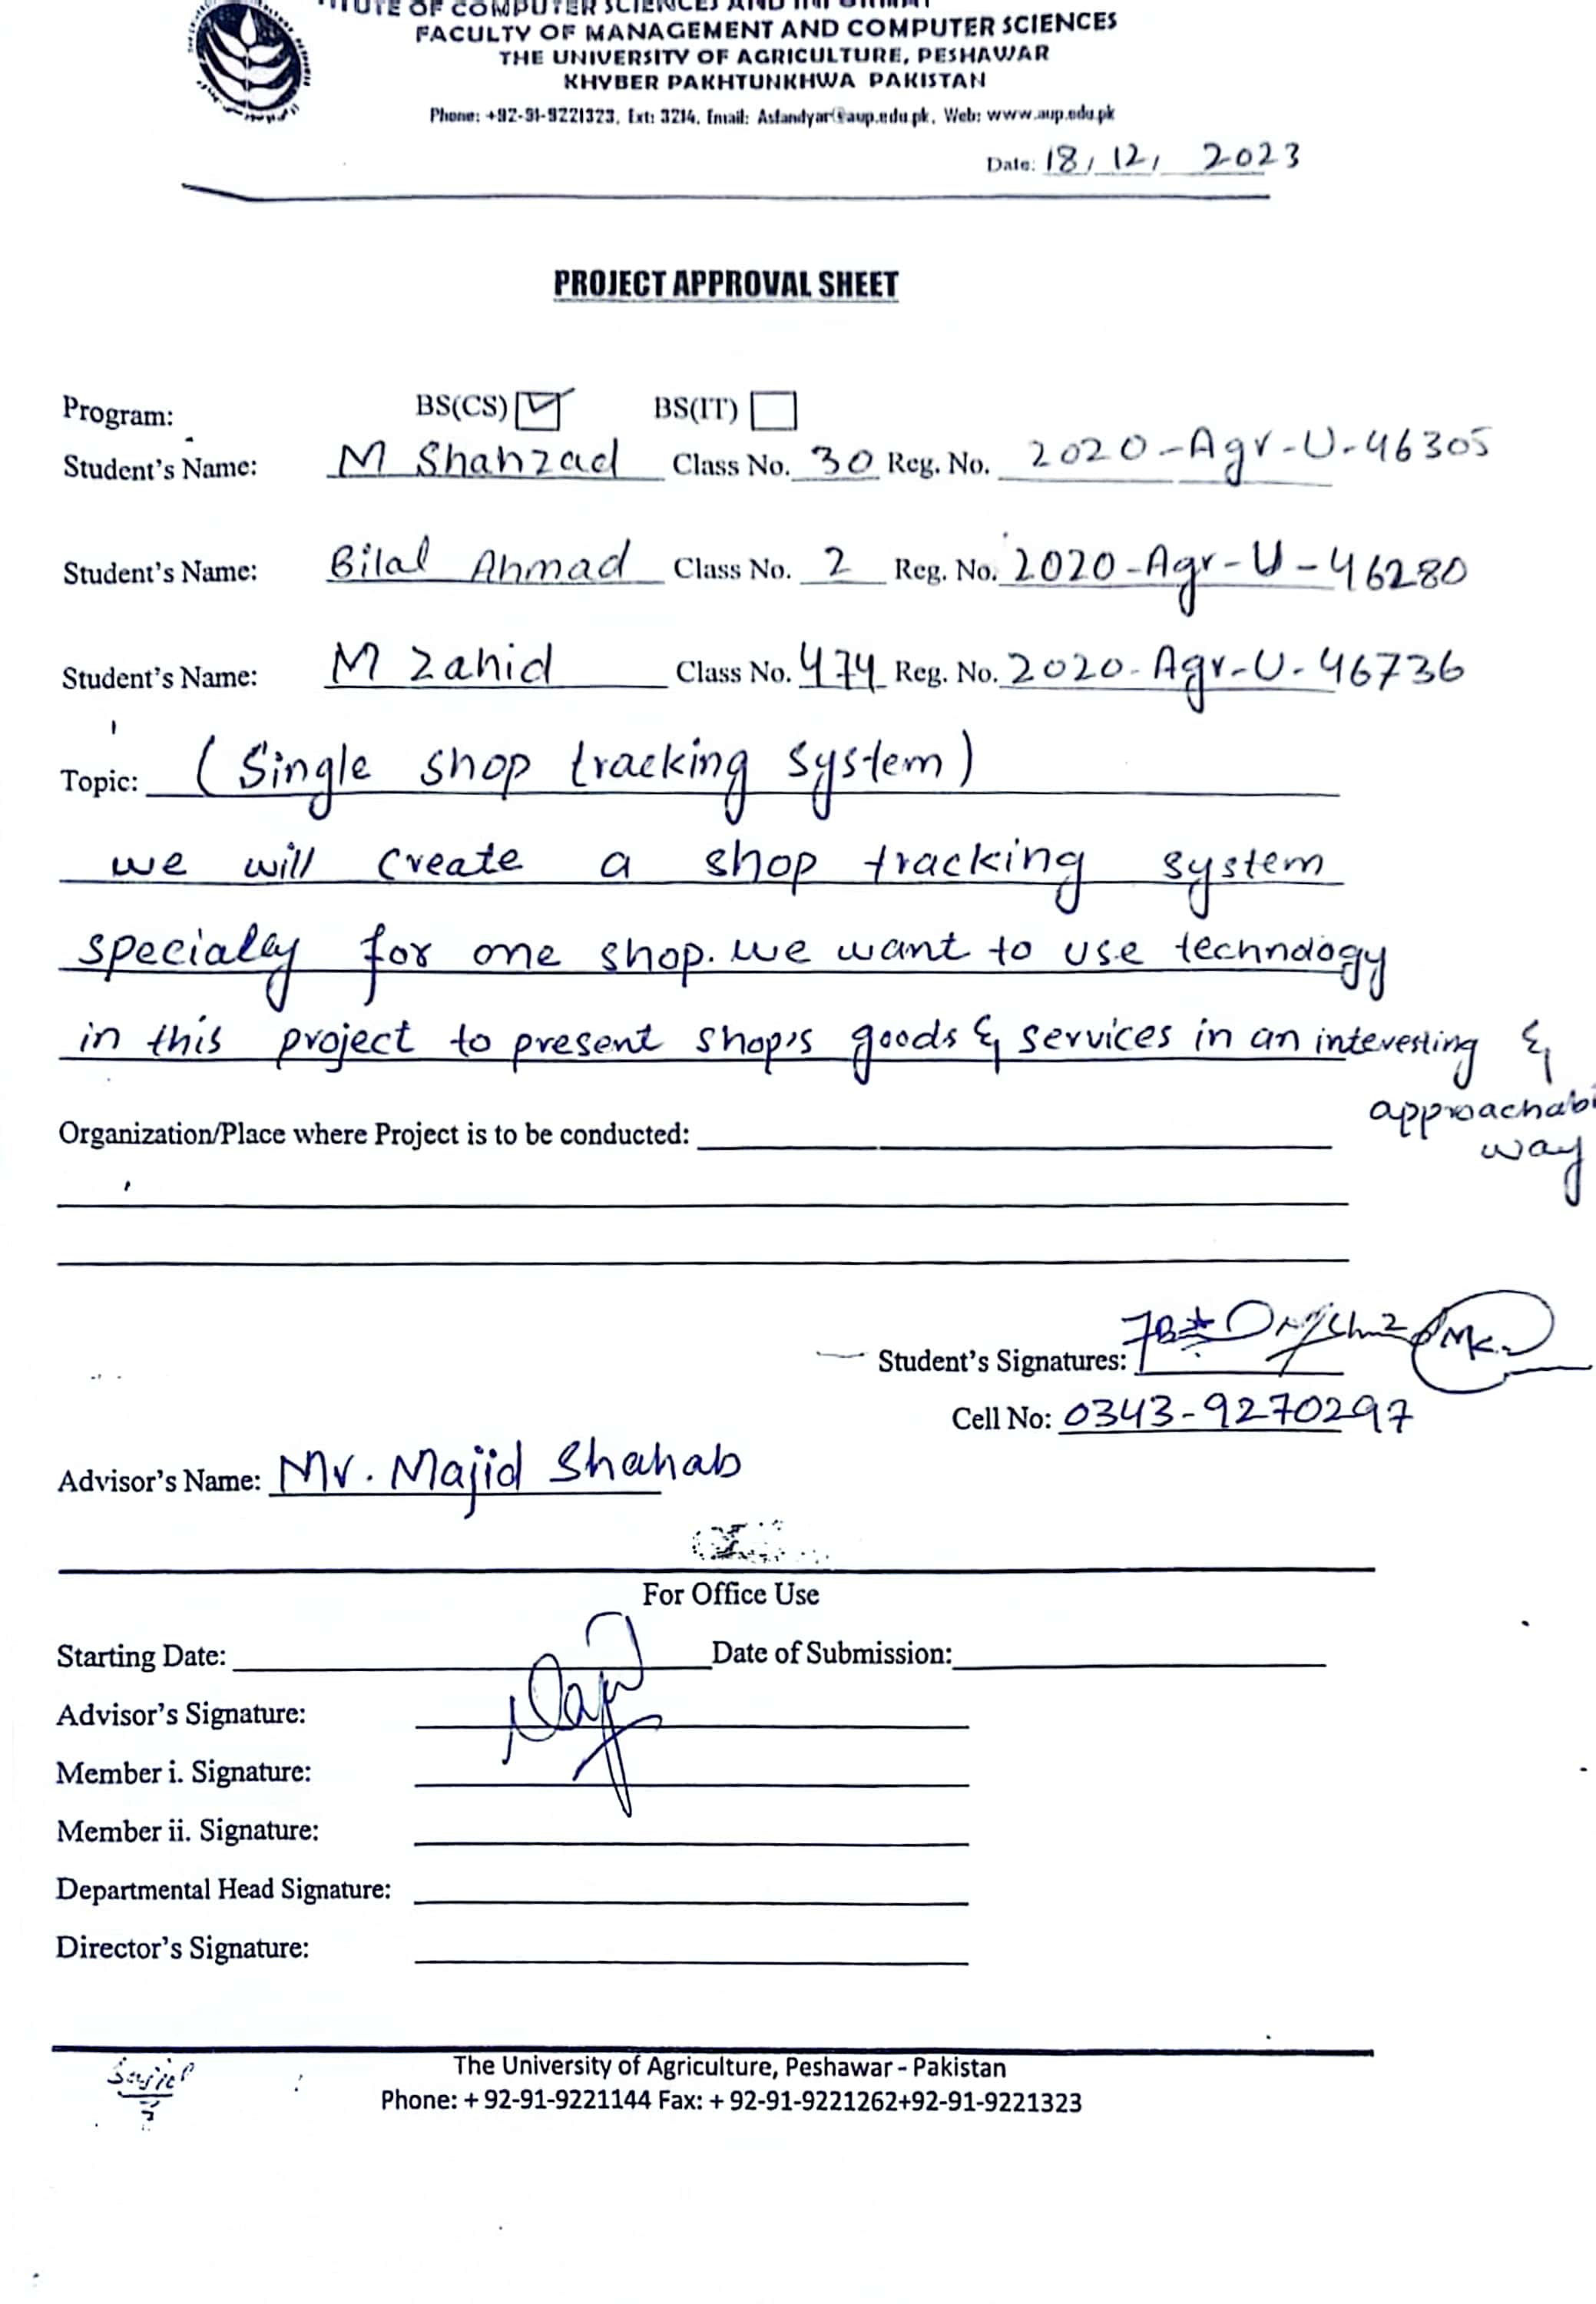 OF COMPUTER SCIENCES AND
FACULTY OF MANAGEMENT AND COMPUTER SCIENCES
THE UNIVERSITY OF AGRICULTURE, PESHAWAR
KHYBER PAKHTUNKHWA PAKISTAN
Phone: +92-91-9221323, Ext: 3214, Email: Asfandyar@aup.edu.pk, Web: www.aup.edu.pk
Date: 18, 12, 2023
PROJECT APPROVAL SHEET
Program: BS(CS) BS(IT)
Student's Name: M Shahzad Class No. 30 Reg. No. 2020-Agr-U-46305
Student's Name: Bilal Ahmad Class No. 2 Reg. No. 2020-Agr-U-46280
Student's Name: M Zahid Class No. 474 Reg. No. 2020-Agr-U-46736
Topic: (Single shop tracking system)
we will create a shop tracking system
specially for one shop. we want to use technology
in this project to present shop's goods & services in an interesting &
way
Organization/Place where Project is to be conducted:
Student's Signatures:
Cell No: 0343-9270297
Advisor's Name: Mr. Majid Shahab
For Office Use
Starting Date: Date of Submission:
Advisor's Signature:
Member i. Signature:
Member ii. Signature:
Departmental Head Signature:
Director's Signature:
The University of Agriculture, Peshawar - Pakistan
Phone: + 92-91-9221144 Fax: + 92-91-9221262+92-91-9221323